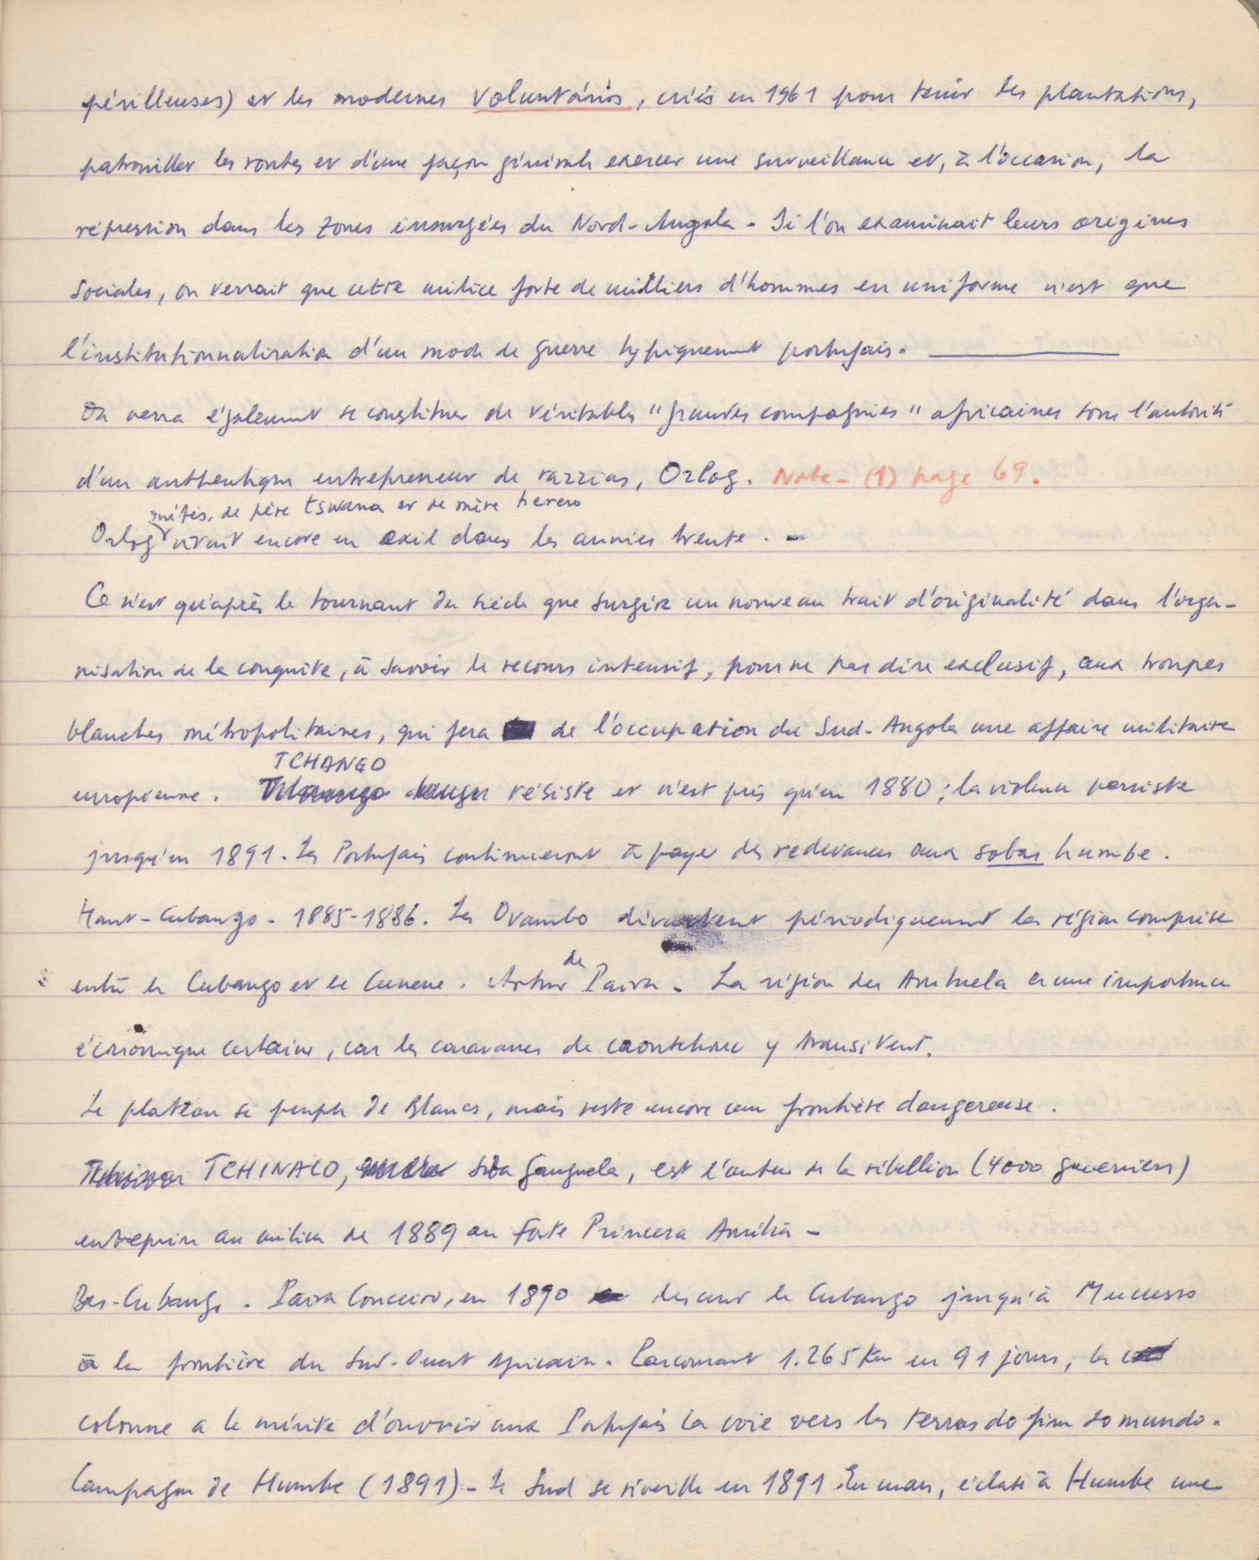 périlleuses) et les modernes Voluntários, créés en 1961 pour tenir les plantations,
patrouiller les routes et d'une façon générale exercer une surveillance et, à l'occasion, la
répression dans les zones insurgées du Nord-Angola. Si l'on examinait leurs origines
sociales, on verrait que cette milice forte de milliers d'hommes en uniforme n'est que
l'institutionnalisation d'un mode de guerre typiquement portugais.
On verra également se constituer de véritables "grandes compagnies" africaines sous l'autorité
d'un authentique entrepreneur de razzias, Orlog. Note - (1) page 69.
métis, de père tswana et de mère herero
Orlog vivait encore en exil dans les années trente. -
Ce n'est qu'après le tournant du siècle que surgira un nouveau trait d'originalité dans l'orga-
nisation de la conquête, à savoir le recours intensif, pour ne pas dire exclusif, aux troupes
blanches métropolitaines, qui fera de l'occupation du Sud-Angola une affaire militaire
TCHANGO
européenne. résiste et n'est pris qu'en 1880 ; la violence persiste
jusqu'en 1891. Les Portugais continueront à payer des redevances aux sobas humbe.
Haut-Cubango - 1885-1886. Les Ovambo dévastent périodiquement la région comprise
de
entre le Cubango et le Cunene. Artur Paiva - La région des Ambuela a une importance
économique certaine, car les caravanes de caoutchouc y transitent.
Le plateau se peuple de Blancs, mais reste encore une frontière dangereuse.
TCHINACO, soba Ganguela, est l'auteur de la rébellion (4000 guerriers)
entreprise au milieu de 1889 au Forte Princesa Amélia -
Bas-Cubango. Paiva Couceiro, en 1890 descend le Cubango jusqu'à Mucusso
à la frontière du Sud-Ouest africain. Parcourant 1.265 Km en 91 jours, la
colonne a le mérite d'ouvrir aux Portugais la voie vers les terras do fim do mundo.
Campagne de Humbe (1891) - Le Sud se réveille en 1891. En mars, éclate à Humbe une